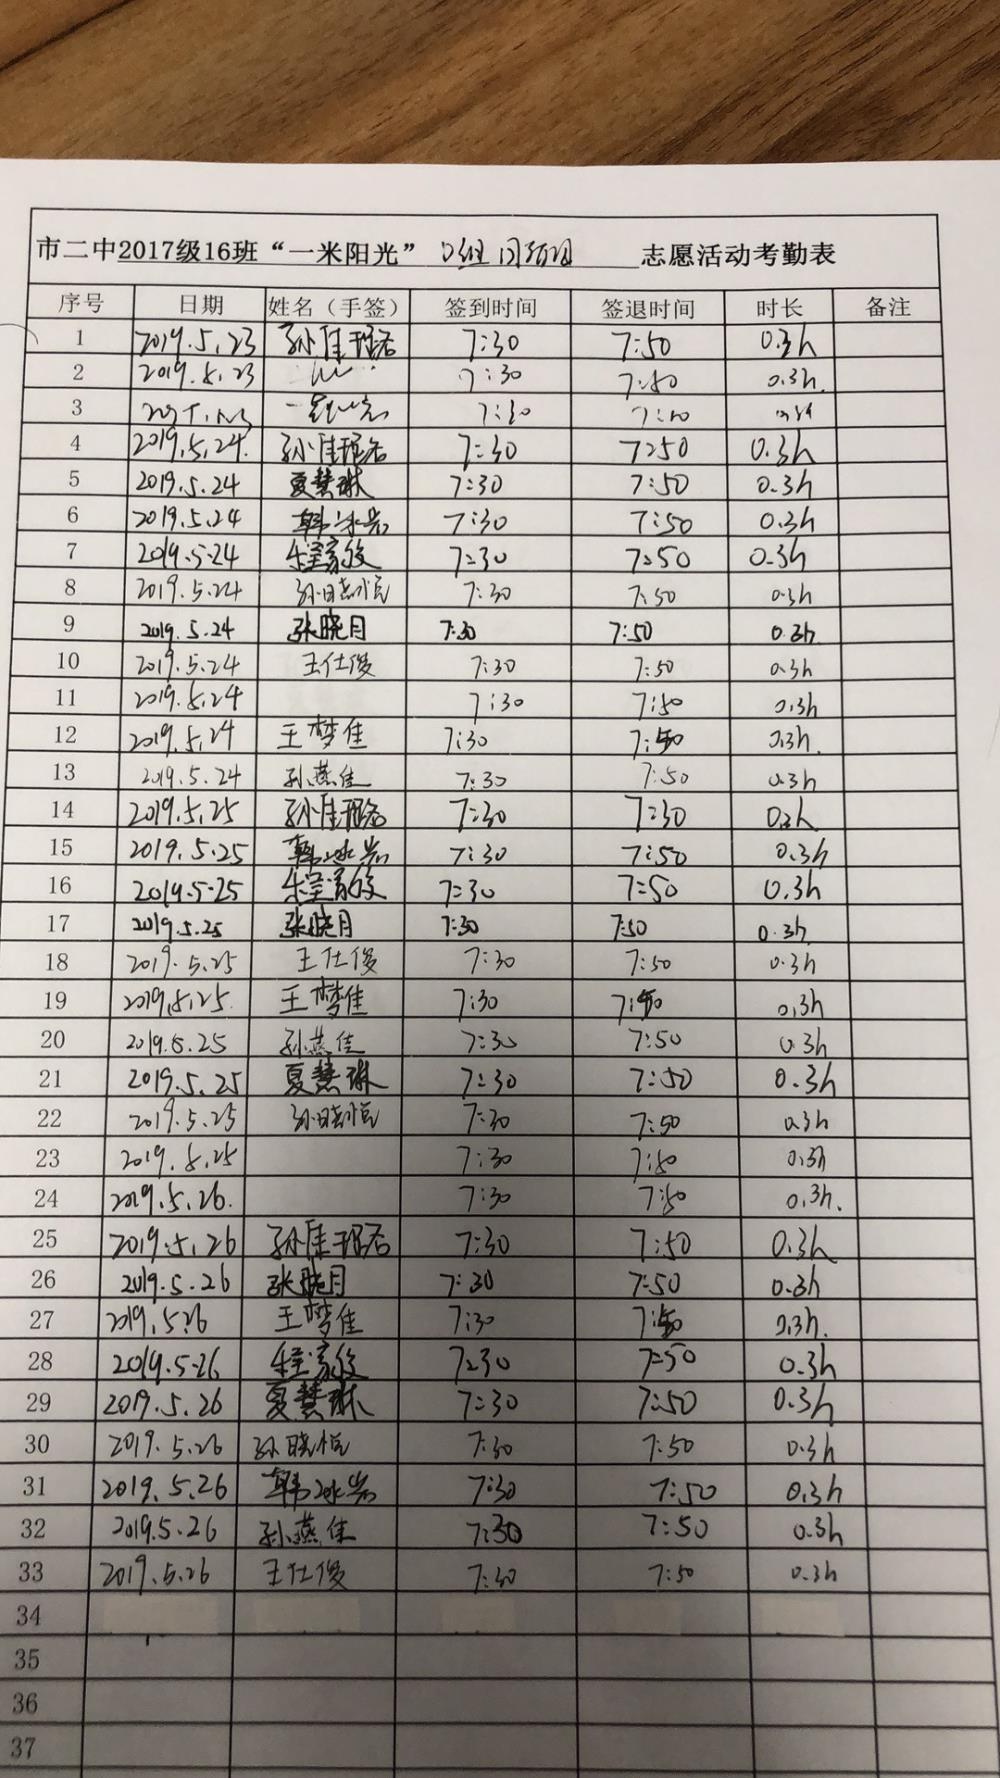 市二中2017级16班“一米阳光” 志愿活动考勤表
序号 日期 姓名（手签） 签到时间 签退时间 时长 备注
1 2019.5.23 孙佳瑶 7:30 7:50 0.3h
2 2019.5.23 7:30 7:50 0.3h.
3 7:30
4 2019.5.24. 孙佳瑶 7:30 7:50 0.3h
5 2019.5.24 夏慧琳 7:30 7:50 0.3h
6 2019.5.24 韩冰岩 7:30 7:50 0.3h
7 2019.5.24 程家俊 7:30 7:50 0.3h
8 2019.5.24 孙晓恒 7:30 7:50 0.3h
9 2019.5.24 张晓月 7:30 7:50 0.3h
10 2019.5.24 王仕俊 7:30 7:50 0.3h
11 2019.5.24 7:30 7:50 0.3h
12 2019.5.24 王梦佳 7:30 7:50 0.3h.
13 2019.5.24 孙燕佳 7:30 7:50 0.3h
14 2019.5.25 孙佳瑶 7:30 7:30 0.3h
15 2019.5.25 韩冰岩 7:30 7:50 0.3h
16 2019.5.25 程家俊 7:30 7:50 0.3h
17 2019.5.25 张晓月 7:30 7:50 0.3h
18 2019.5.25 王仕俊 7:30 7:50 0.3h
19 2019.5.25. 王梦佳 7:30 7:50 0.3h
20 2019.5.25 孙燕佳 7:30 7:50 0.3h
21 2019.5.25 夏慧琳 7:30 7:50 0.3h
22 2019.5.25 孙晓恒 7:30 7:50 0.3h
23 2019.5.25 7:30 7:50 0.3h
24 2019.5.26. 7:30 7:50 0.3h.
25 2019.5.26 孙佳瑶 7:30 7:50 0.3h
26 2019.5.26 张晓月 7:30 7:50 0.3h
27 2019.5.26 王梦佳 7:30 7:50 0.3h.
28 2019.5.26 程家俊 7:30 7:50 0.3h
29 2019.5.26 夏慧琳 7:30 7:50 0.3h
30 2019.5.26 孙晓恒 7:30 7:50 0.3h
31 2019.5.26 韩冰岩 7:30 7:50 0.3h
32 2019.5.26 孙燕佳 7:30 7:50 0.3h
33 2019.5.26 王仕俊 7:30 7:50 0.3h
34
35
36
37